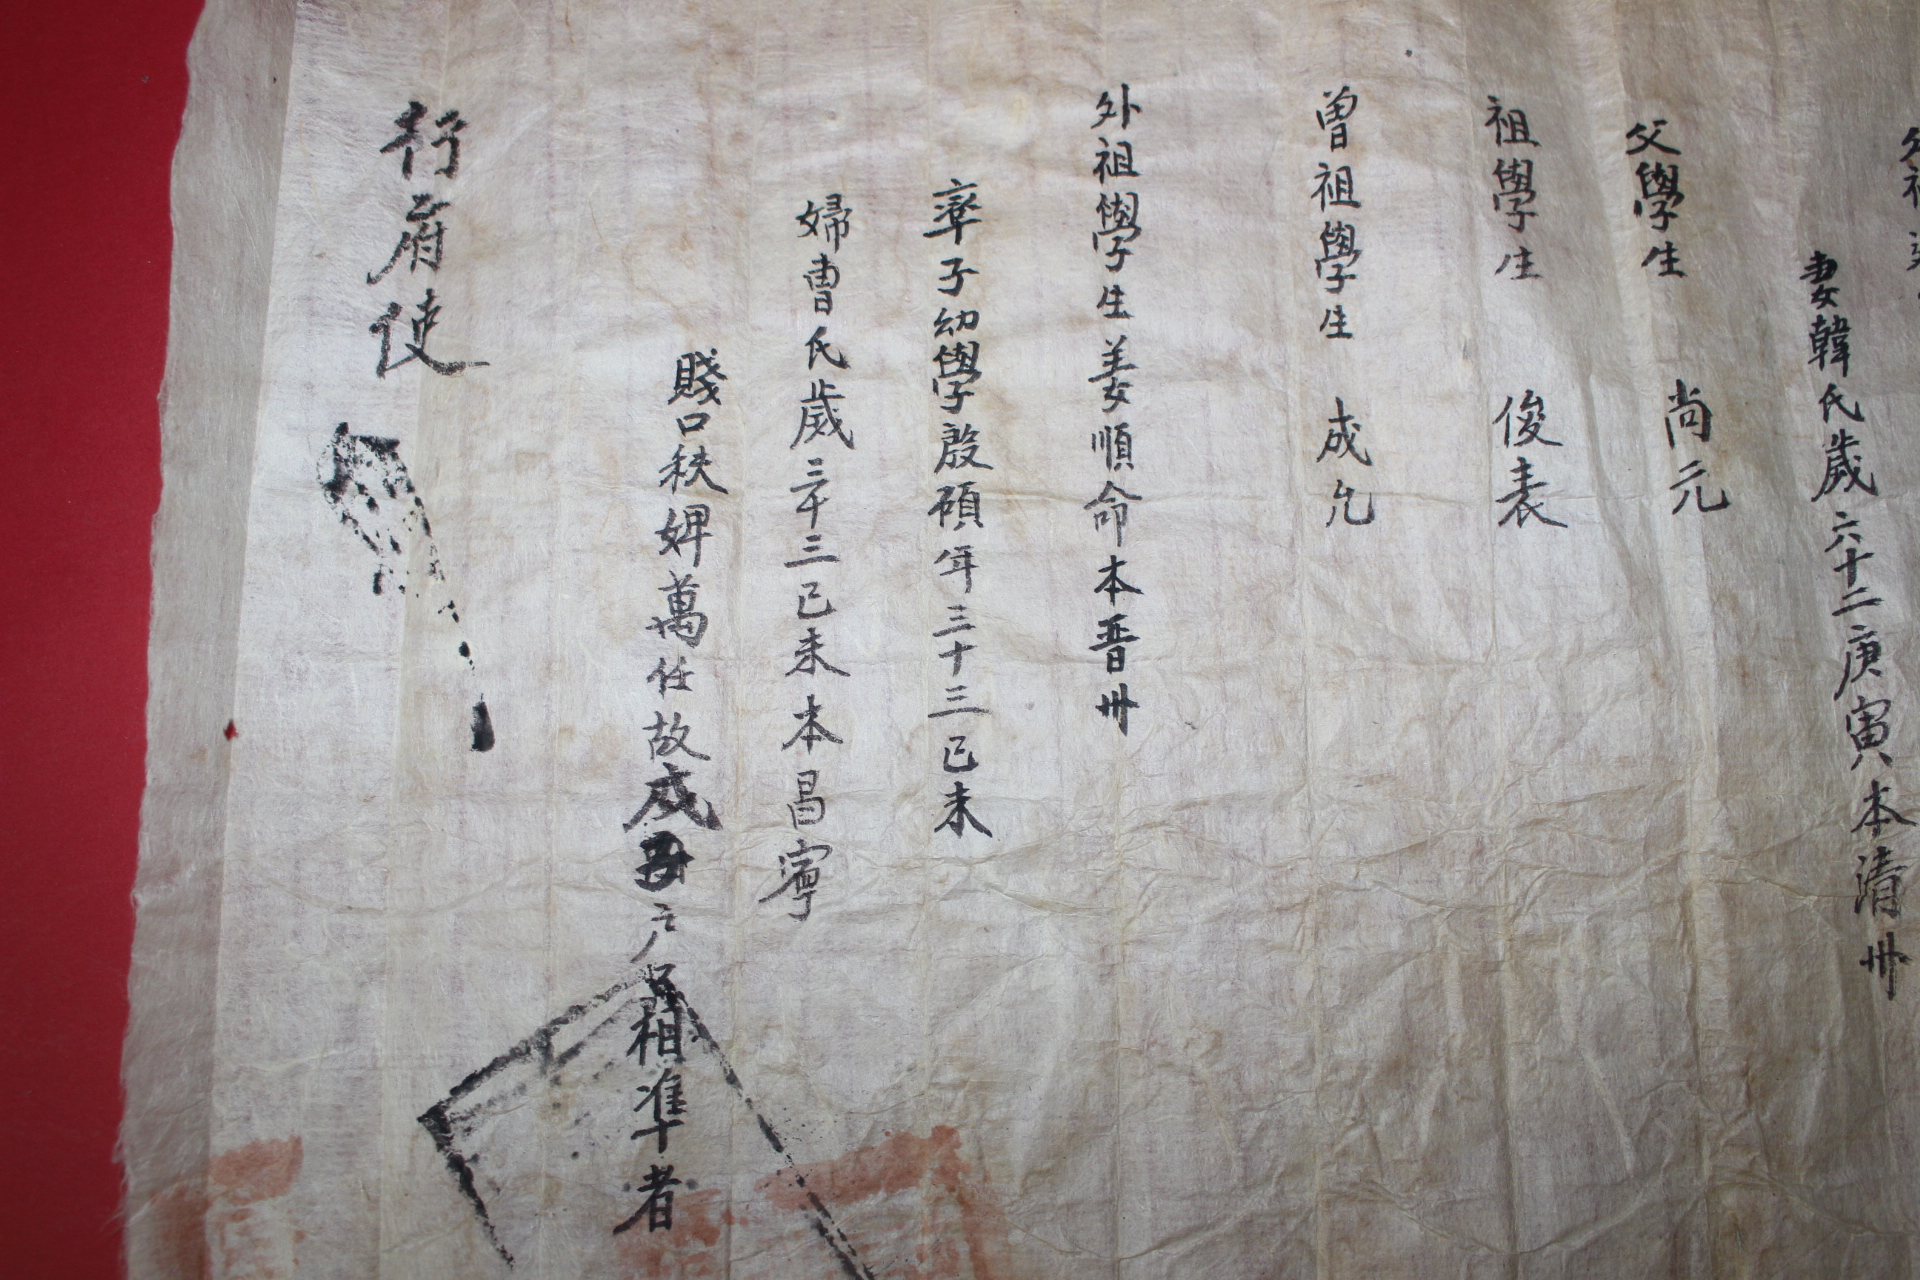 外祖
妻韓氏歲六十二庚寅本清州
父學生 尚元
祖學生 俊表
曾祖學生 成允
外祖學生姜順命本晋州
率子幼學殷碩年三十三己未
婦曺氏歲三十三己未本昌寧
賤口秩婢萬任故戶相準者
行府使